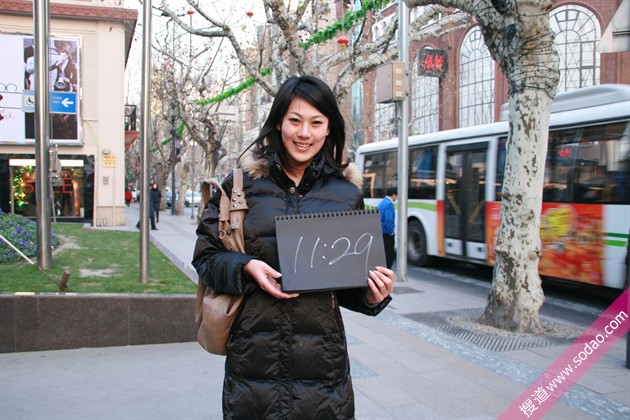 H&M
11:29
搜道 www.sodao.com